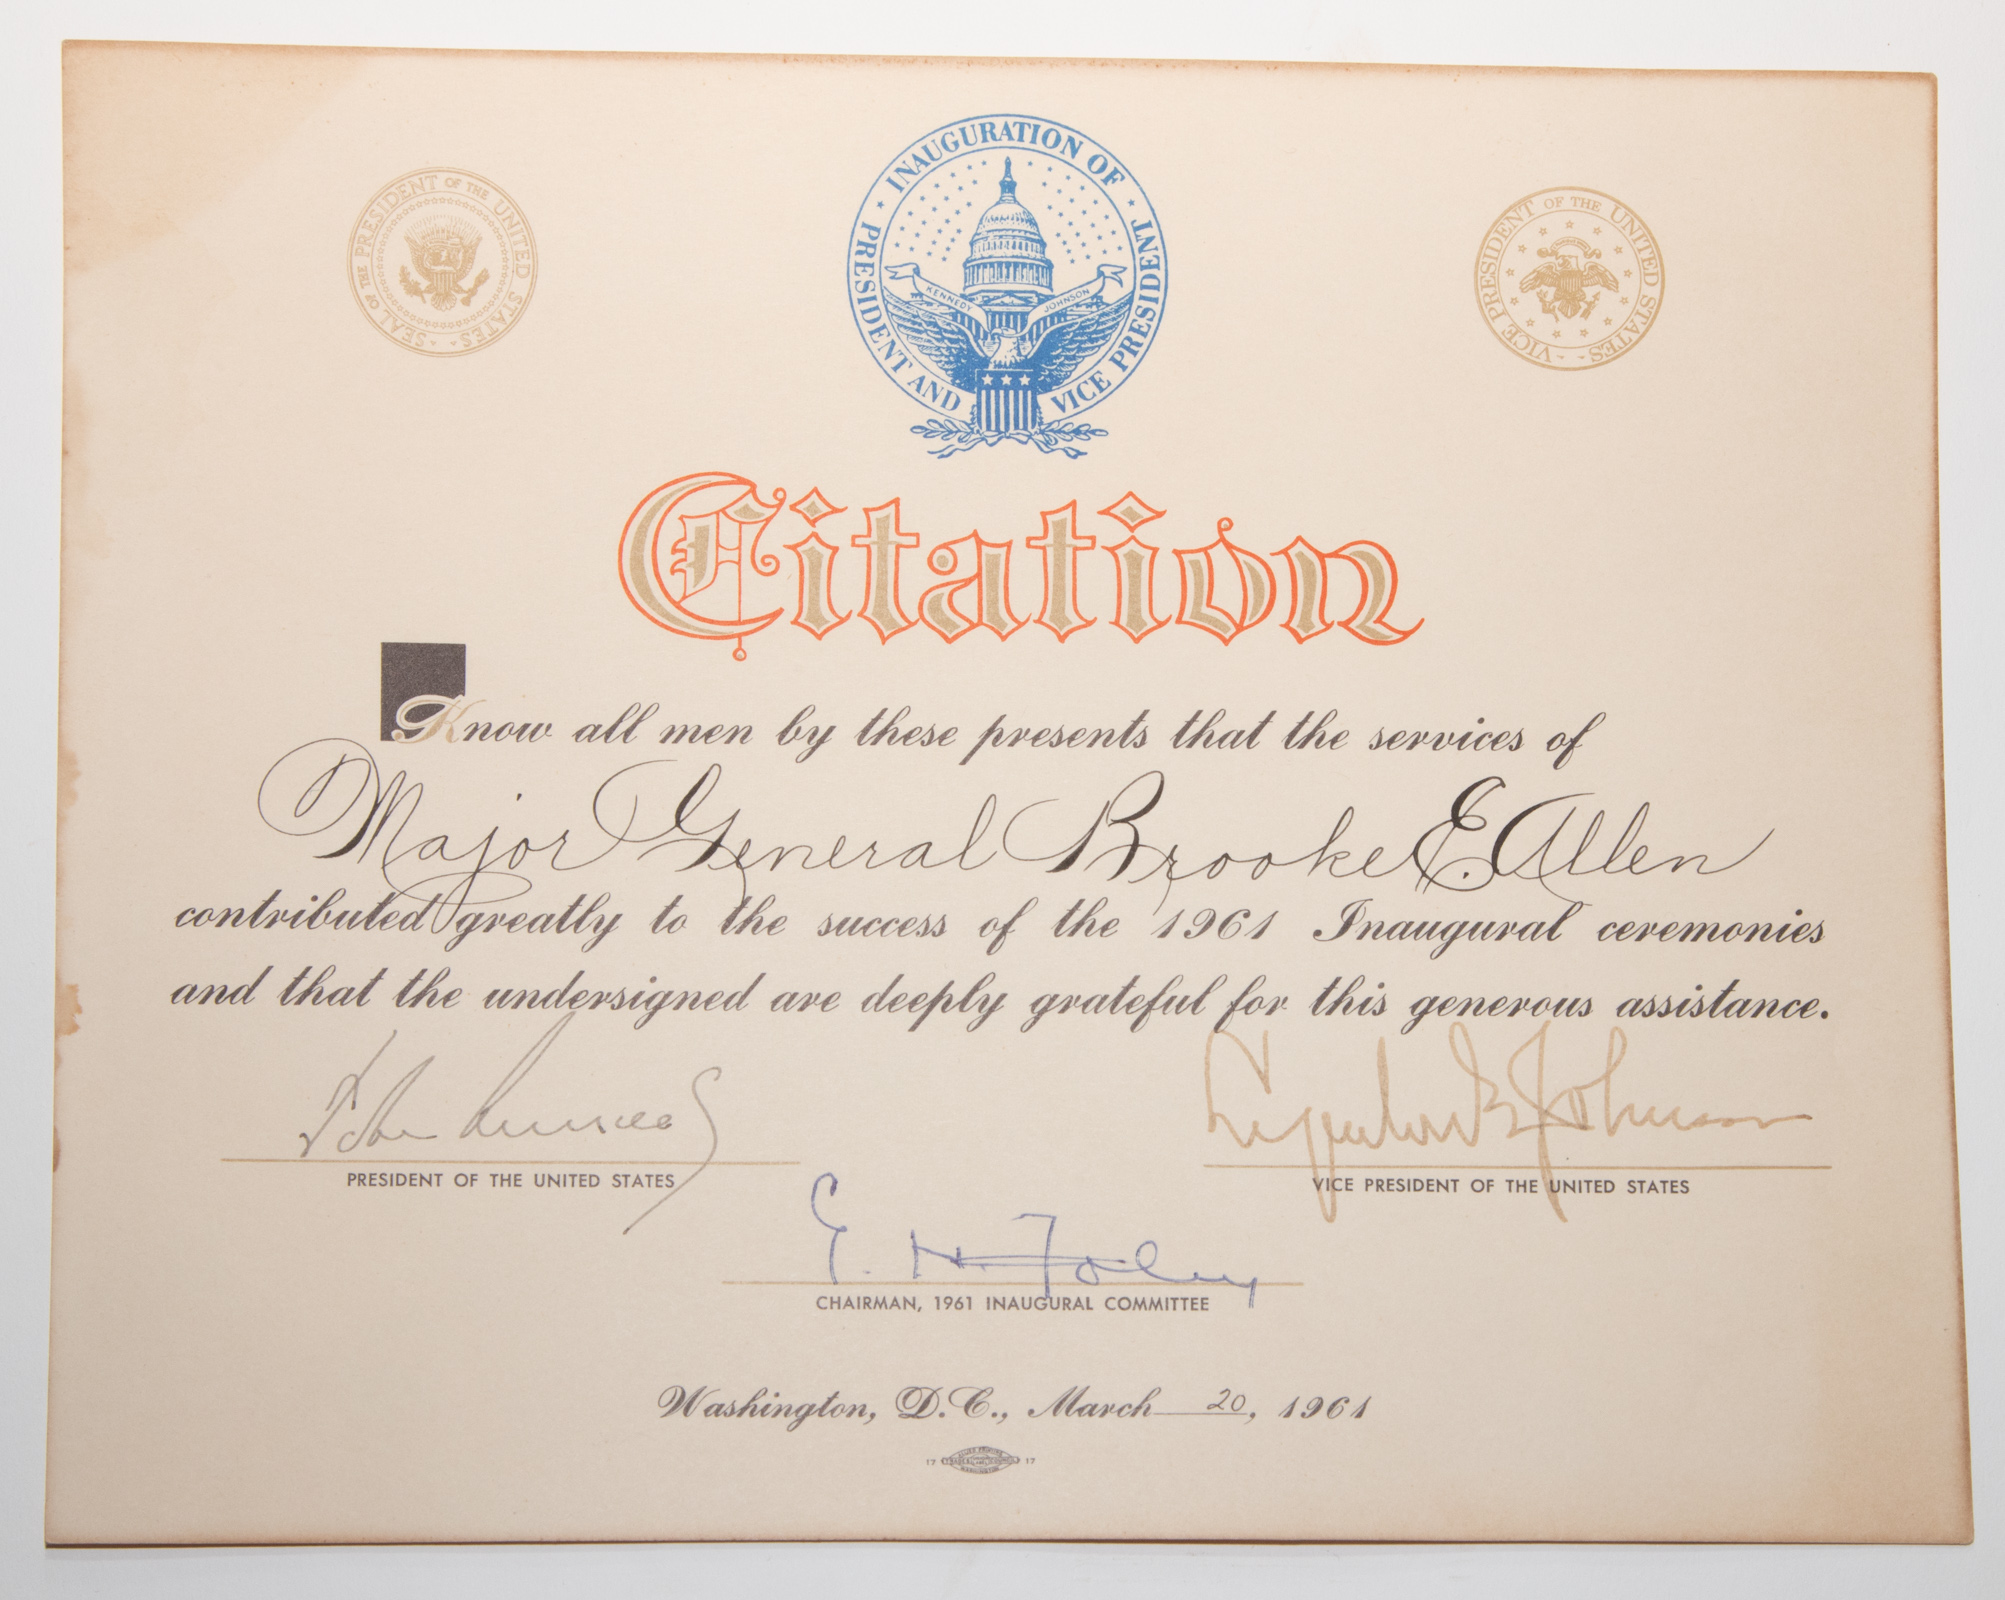 SEAL OF THE PRESIDENT OF THE UNITED STATES
INAUGURATION OF PRESIDENT AND VICE PRESIDENT
KENNEDY JOHNSON
VICE PRESIDENT OF THE UNITED STATES
Citation
Know all men by these presents that the services of
Major General Brooke E. Allen
contributed greatly to the success of the 1961 Inaugural ceremonies
and that the undersigned are deeply grateful for this generous assistance.
John Kennedy
Lyndon B Johnson
PRESIDENT OF THE UNITED STATES
VICE PRESIDENT OF THE UNITED STATES
E. H. Foley
CHAIRMAN, 1961 INAUGURAL COMMITTEE
Washington, D.C., March 20, 1961
17 17